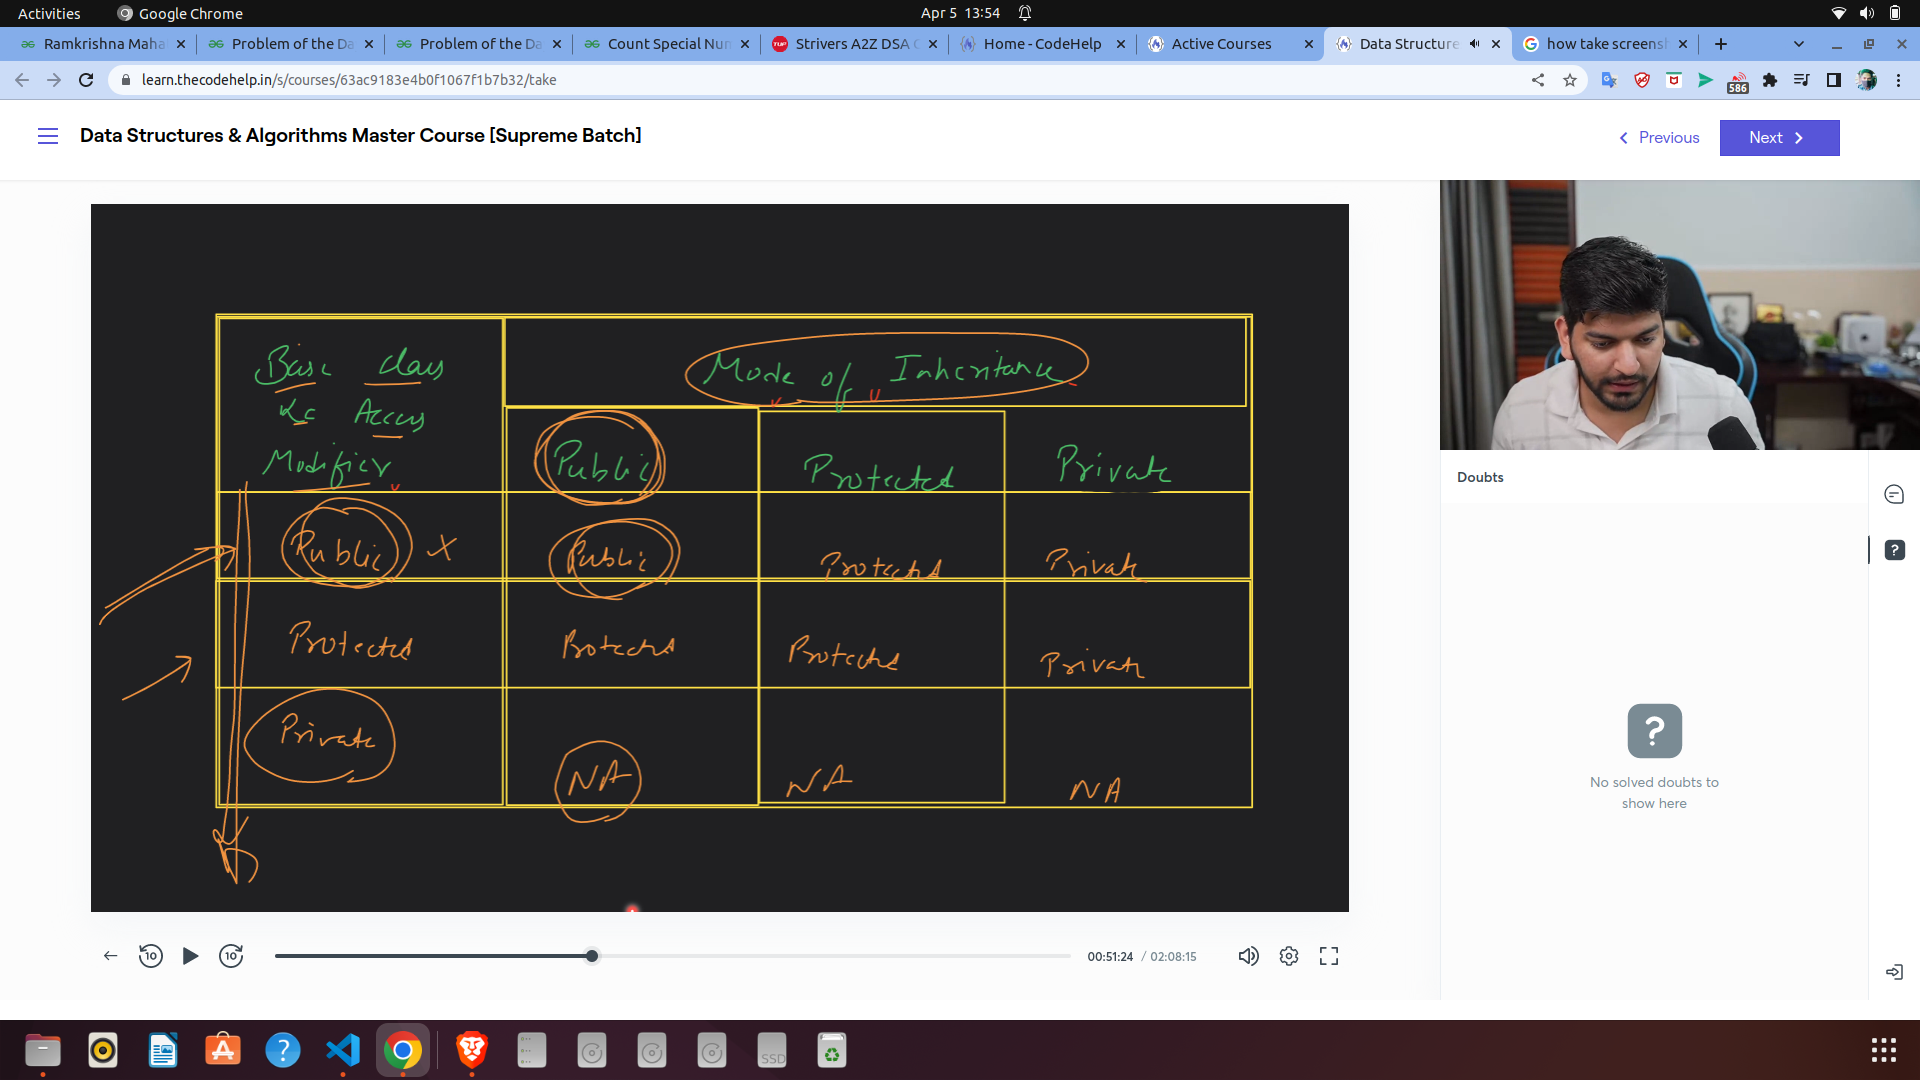 Activities
Google Chrome
Apr 5 13:54
Ramkrishna Maha
Problem of the Da
Problem of the Da
Count Special Nun
TUF
Strivers A2Z DSA C
Home - CodeHelp
Active Courses
Data Structure
how take screensh
learn.thecodehelp.in/s/courses/63ac9183e4b0f1067f1b7b32/take
586
Data Structures & Algorithms Master Course [Supreme Batch]
Previous
Next
Base class
ke Access
Modifier
Mode of Inheritance
Public
Protected
Private
Public X
Public
Protected
Private
Protected
Protected
Protected
Private
Private
NA
NA
NA
Doubts
?
?
No solved doubts to
show here
10
10
00:51:24 / 02:08:15
?
SSD